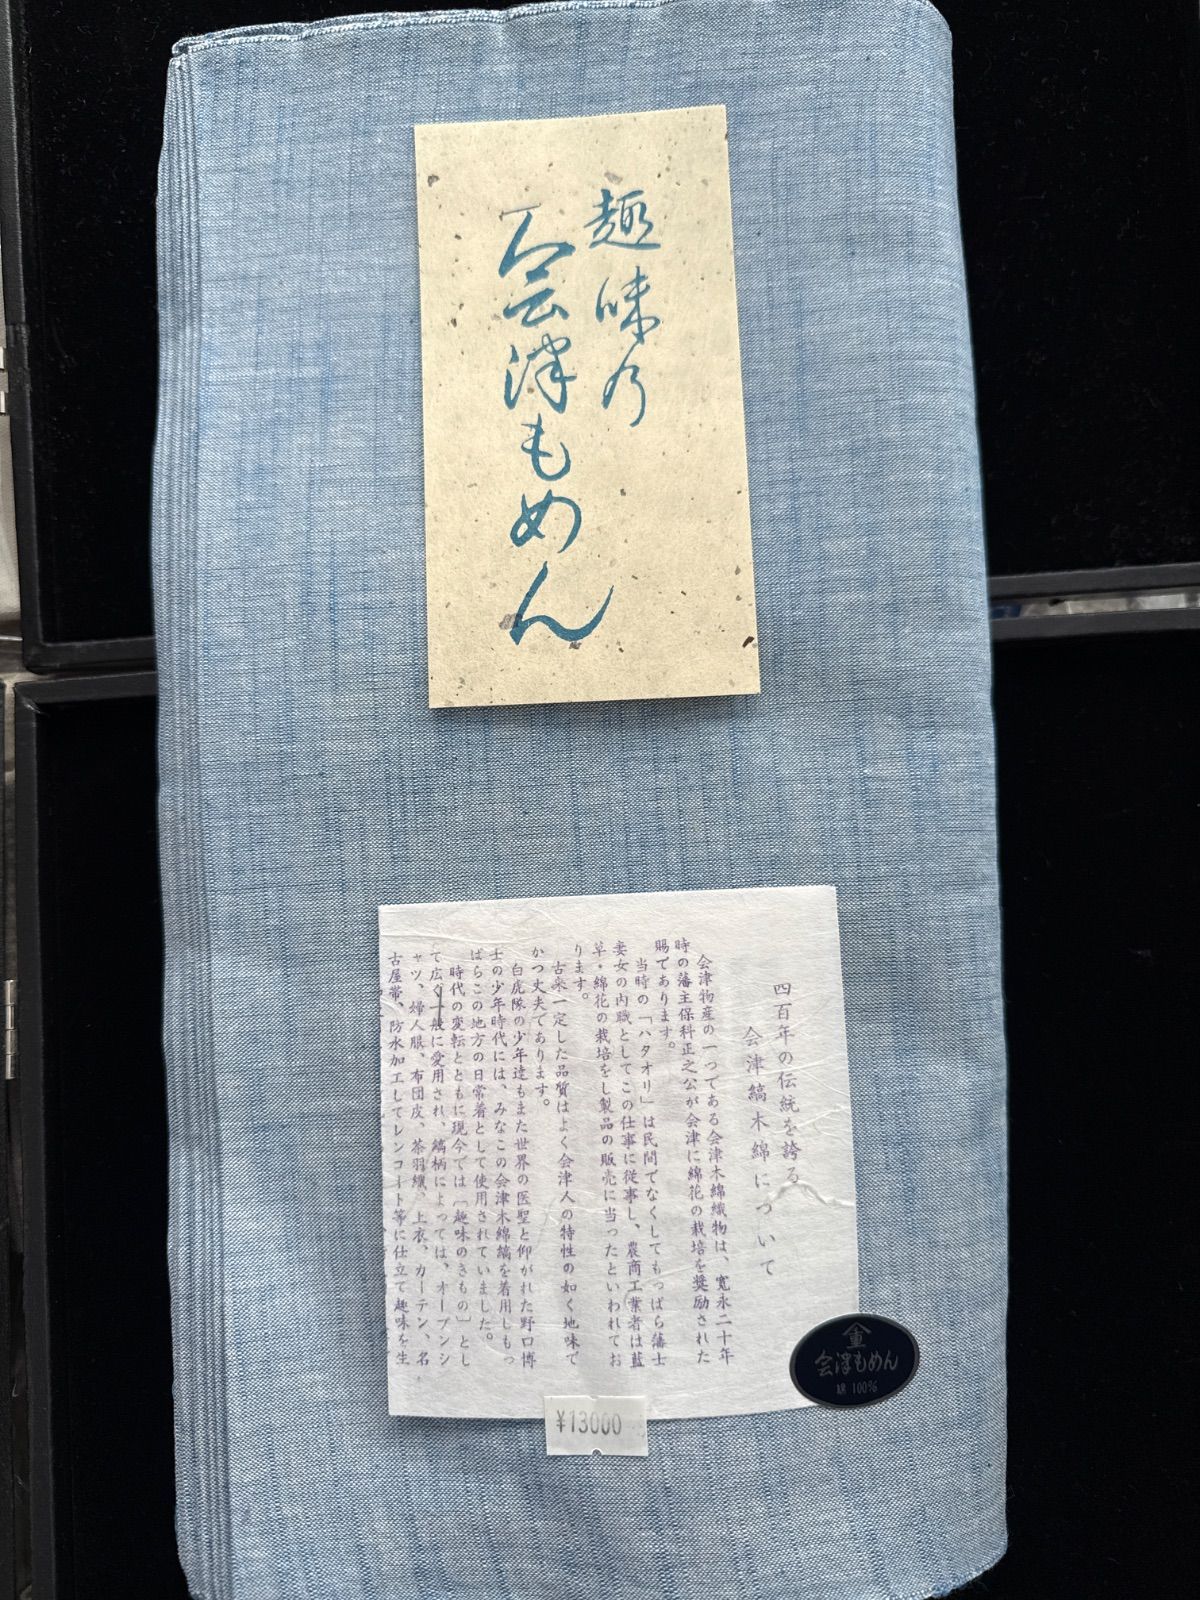 趣味の
会津もめん
四百年の伝統を誇る
会津縞木綿について
会津物産の一つである会津木綿織物は、寛永二十年
時の藩主保科正之公が会津に綿花の栽培を奨励された
賜であります。
当時の「ハタオリ」は民間でなくしてもっぱら藩士
妻女の内職としてこの仕事に従事し、農商工業者は藍
草・綿花の栽培をし製品の販売に当ったといわれてお
ります。
古来一定した品質はよく会津人の特性の如く地味で
かつ丈夫であります。
白虎隊の少年達もまた世界の医聖と仰がれた野口博
士の少年時代には、みなこの会津木綿縞を着用しもっ
ぱらこの地方の日常着として使用されていました。
時代の変転とともに現今では「趣味のきもの」とし
て広く一般に愛用され、縞柄によっては、オープンシ
ャツ、婦人服、布団皮、茶羽織、上衣、カーテン、名
古屋帯、防水加工してレンコート等に仕立て趣味を生
重
会津もめん
綿 100%
¥13000